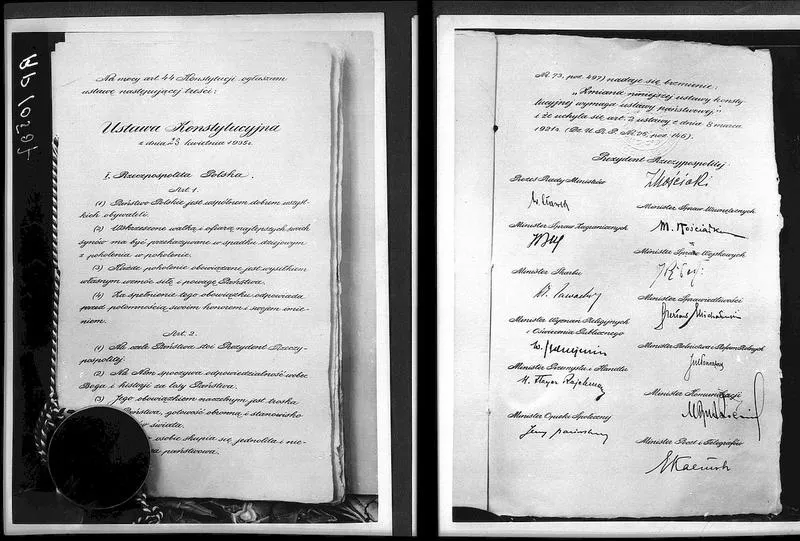 Na mocy art. 44 Konstytucji ogłaszam
ustawę następującej treści:
Ustawa Konstytucyjna
z dnia 23 kwietnia 1935 r.
I. Rzeczpospolita Polska.
Art. 1.
(1) Państwo Polskie jest wspólnem dobrem wszyst-
kich obywateli.
(2) Wskrzeszone walką i ofiarą najlepszych swoich
synów ma być przekazywane w spadku dziejowym
z pokolenia w pokolenie.
(3) Każde pokolenie obowiązane jest wysiłkiem
własnym wzmóc siłę i powagę Państwa.
(4) Za spełnienie tego obowiązku odpowiada
przed potomnością swoim honorem i swojem imie-
niem.
Art. 2.
(1) Na czele Państwa stoi Prezydent Rzeczy-
pospolitej.
(2) Na Nim spoczywa odpowiedzialność wobec
Boga i historji za losy Państwa.
(3) Jego obowiązkiem naczelnym jest troska
Państwa, gotowość obronną i stanowisko
świata.
osobie skupia się jednolita i nie-
państwowa.
Nr. 73, poz. 497) nadaje się brzmienie:
„Zmiana niniejszej ustawy konsty-
tucyjnej wymaga ustawy państwowej"
i że uchyla się art. 2 ustawy z dnia 8 marca
1921 r. (Dz. U. R. P. Nr. 25, poz. 146).
Prezydent Rzeczypospolitej
IMościcki
Prezes Rady Ministrów
Minister Spraw Wewnętrznych
Minister Spraw Zagranicznych
Minister Spraw Wojskowych
Minister Skarbu
Minister Sprawiedliwości
Minister Wyznań Religijnych
i Oświecenia Publicznego
Minister Rolnictwa i Reform Rolnych
Minister Przemysłu i Handlu
Minister Komunikacji
Minister Opieki Społecznej
Minister Poczt i Telegrafów